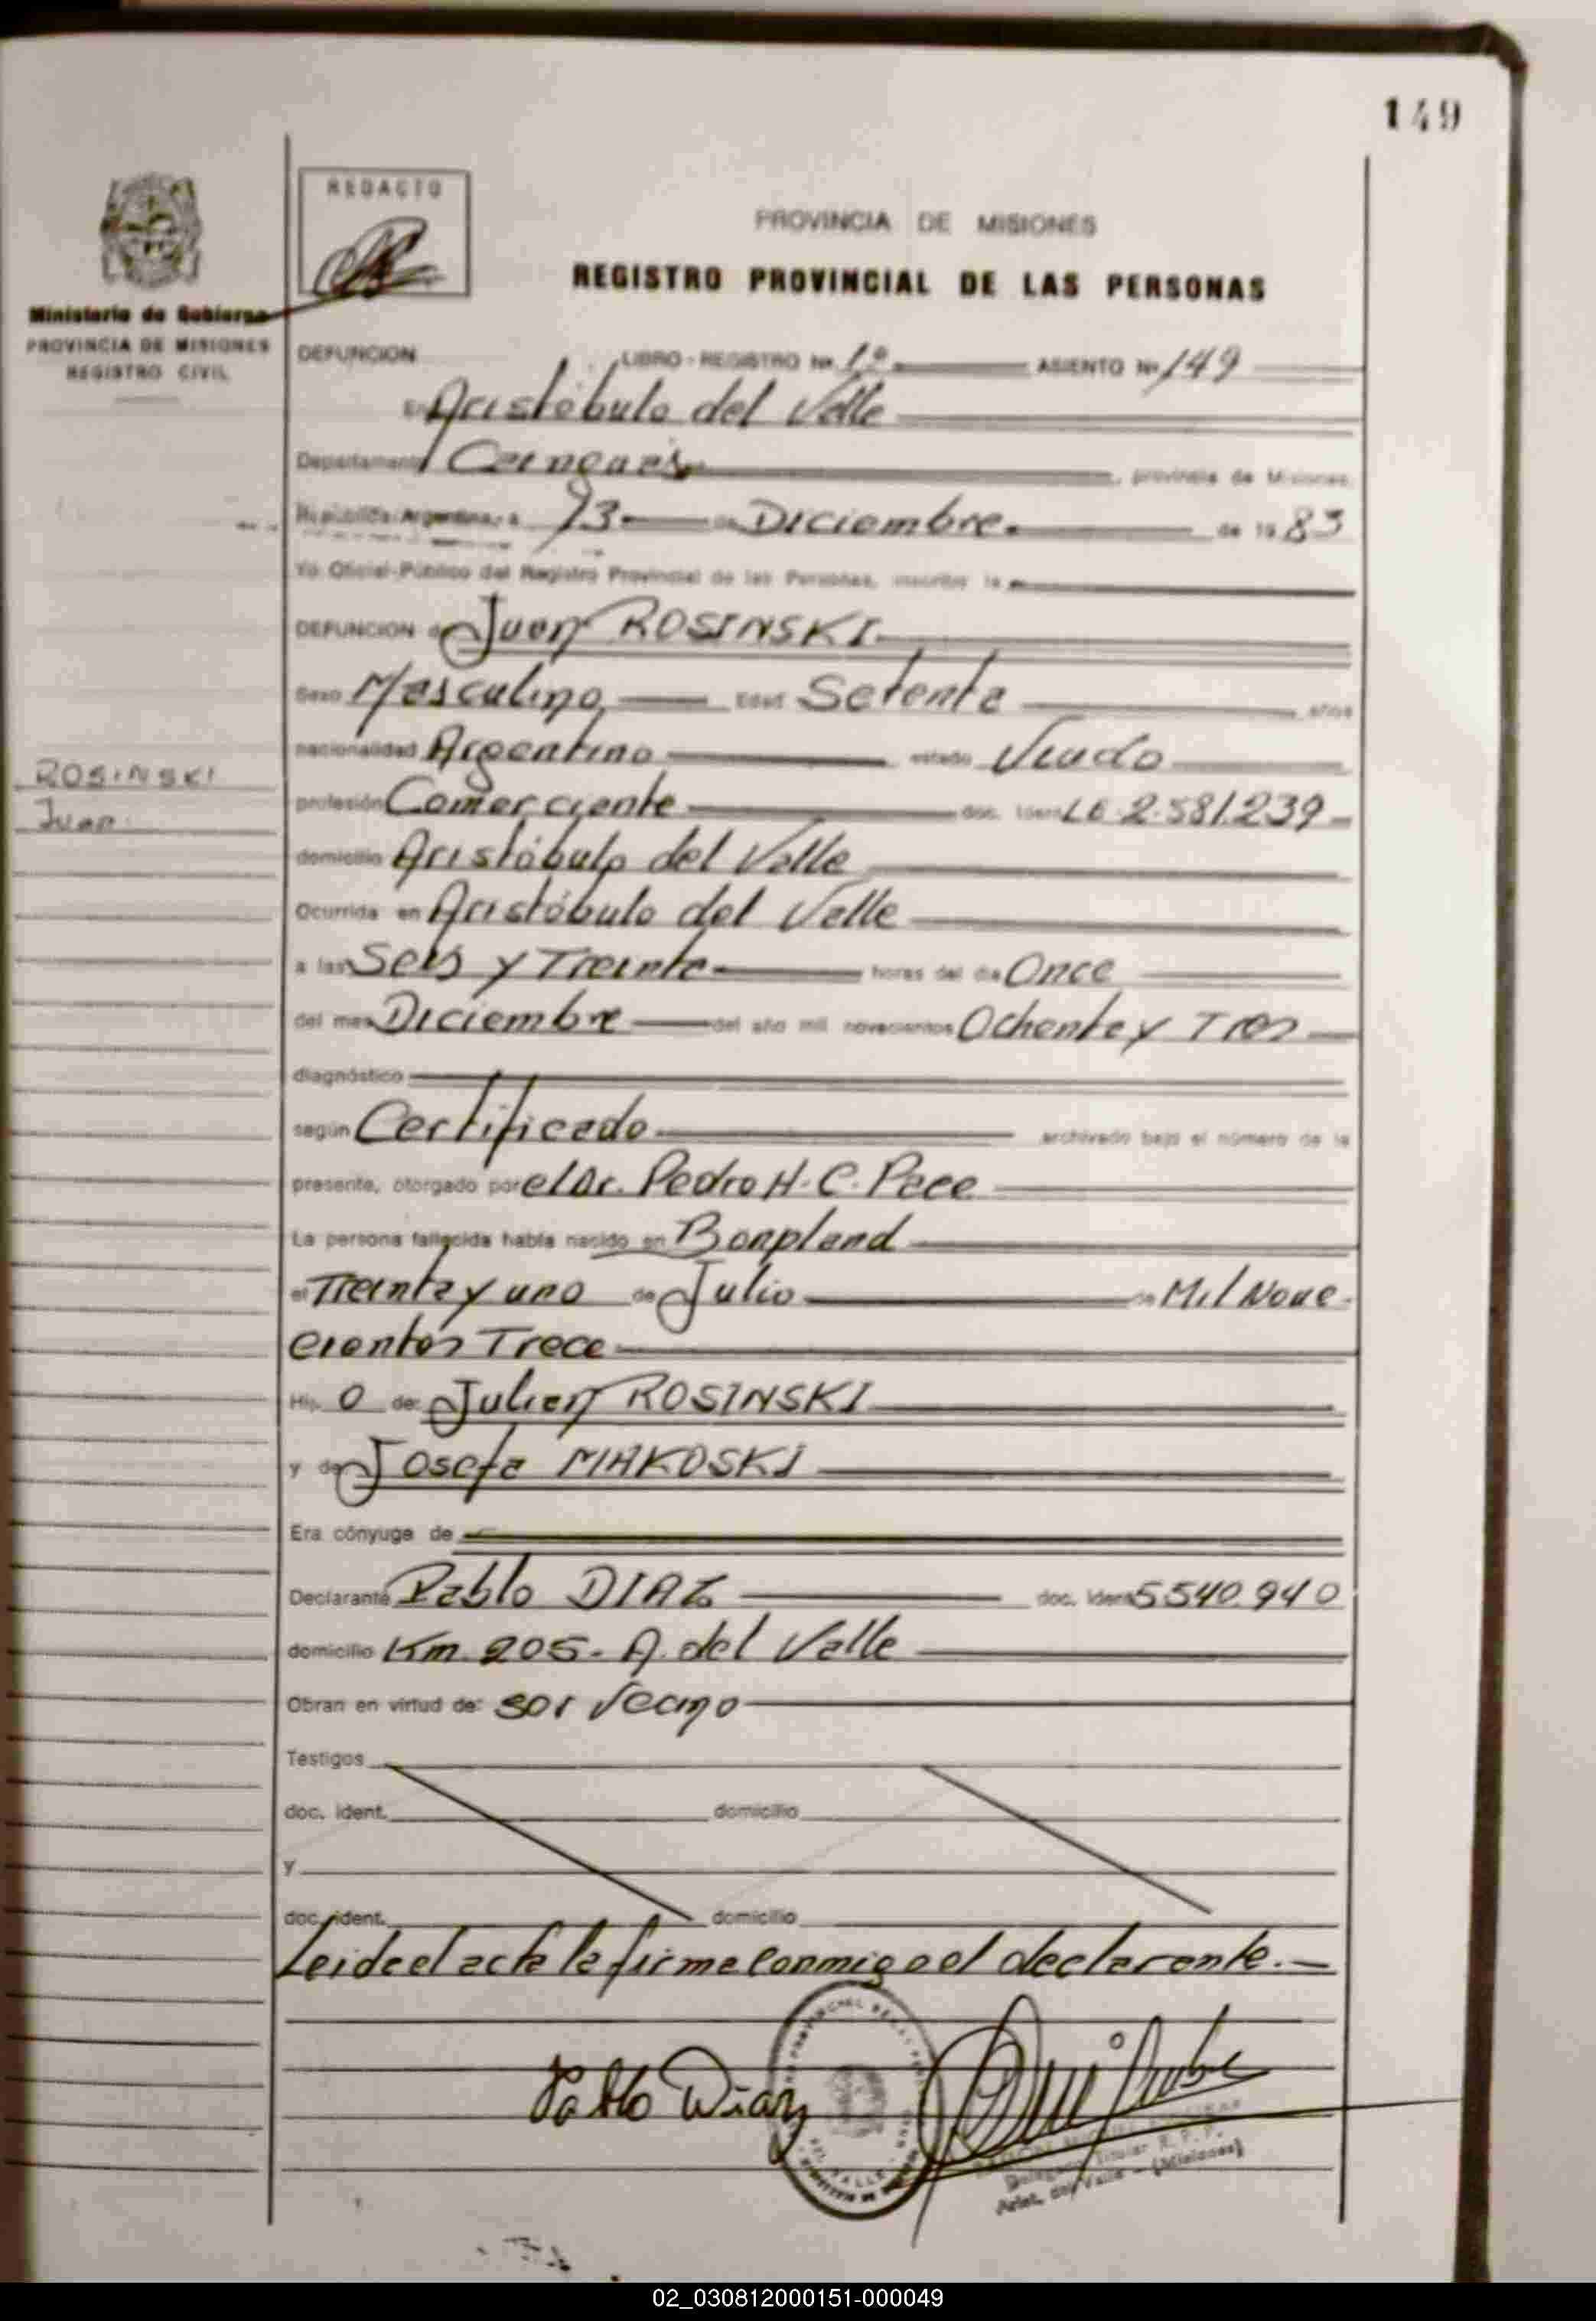 149
REDACTO
PROVINCIA DE MISIONES
REGISTRO PROVINCIAL DE LAS PERSONAS
Ministerio de Gobierno
PROVINCIA DE MISIONES
REGISTRO CIVIL
DEFUNCION LIBRO - REGISTRO Nº 1º ASIENTO Nº 149
En Aristóbulo del Valle
Departamento Cainguás, provincia de Misiones,
República Argentina, a 13 de Diciembre. de 1983
Yo Oficial Público del Registro Provincial de las Personas, inscribo la
DEFUNCION de Juan ROSINSKI
Sexo Masculino Edad Setenta años
nacionalidad Argentino estado Viudo
ROSINSKI
Juan
profesión Comerciante doc. Ident LE 2.581.239
domicilio Aristóbulo del Valle
Ocurrida en Aristóbulo del Valle
a las Seis y Treinta horas del día Once
del mes Diciembre del año mil novecientos Ochenta y Tres
diagnóstico
según Certificado archivado bajo el número de la
presente, otorgado por el Dr. Pedro H. C. Pace
La persona fallecida había nacido en Bonpland
el Treinta y uno de Julio de Mil Nove-
cientos Trece
Hijo de: Julian ROSINSKI
y de Josefa MAKOSKI
Era cónyuge de
Declarante Pablo DIAZ doc. Ident 5540.940
domicilio Km. 205 - A. del Valle
Obran en virtud de: ser Vecino
Testigos
doc. ident. domicilio
y
doc. ident. domicilio
Leida el acta la firma conmigo el declarante.—
Pablo Diaz
Delegado Titular R. P. P.
Arist. del Valle - (Misiones)
02_030812000151-000049